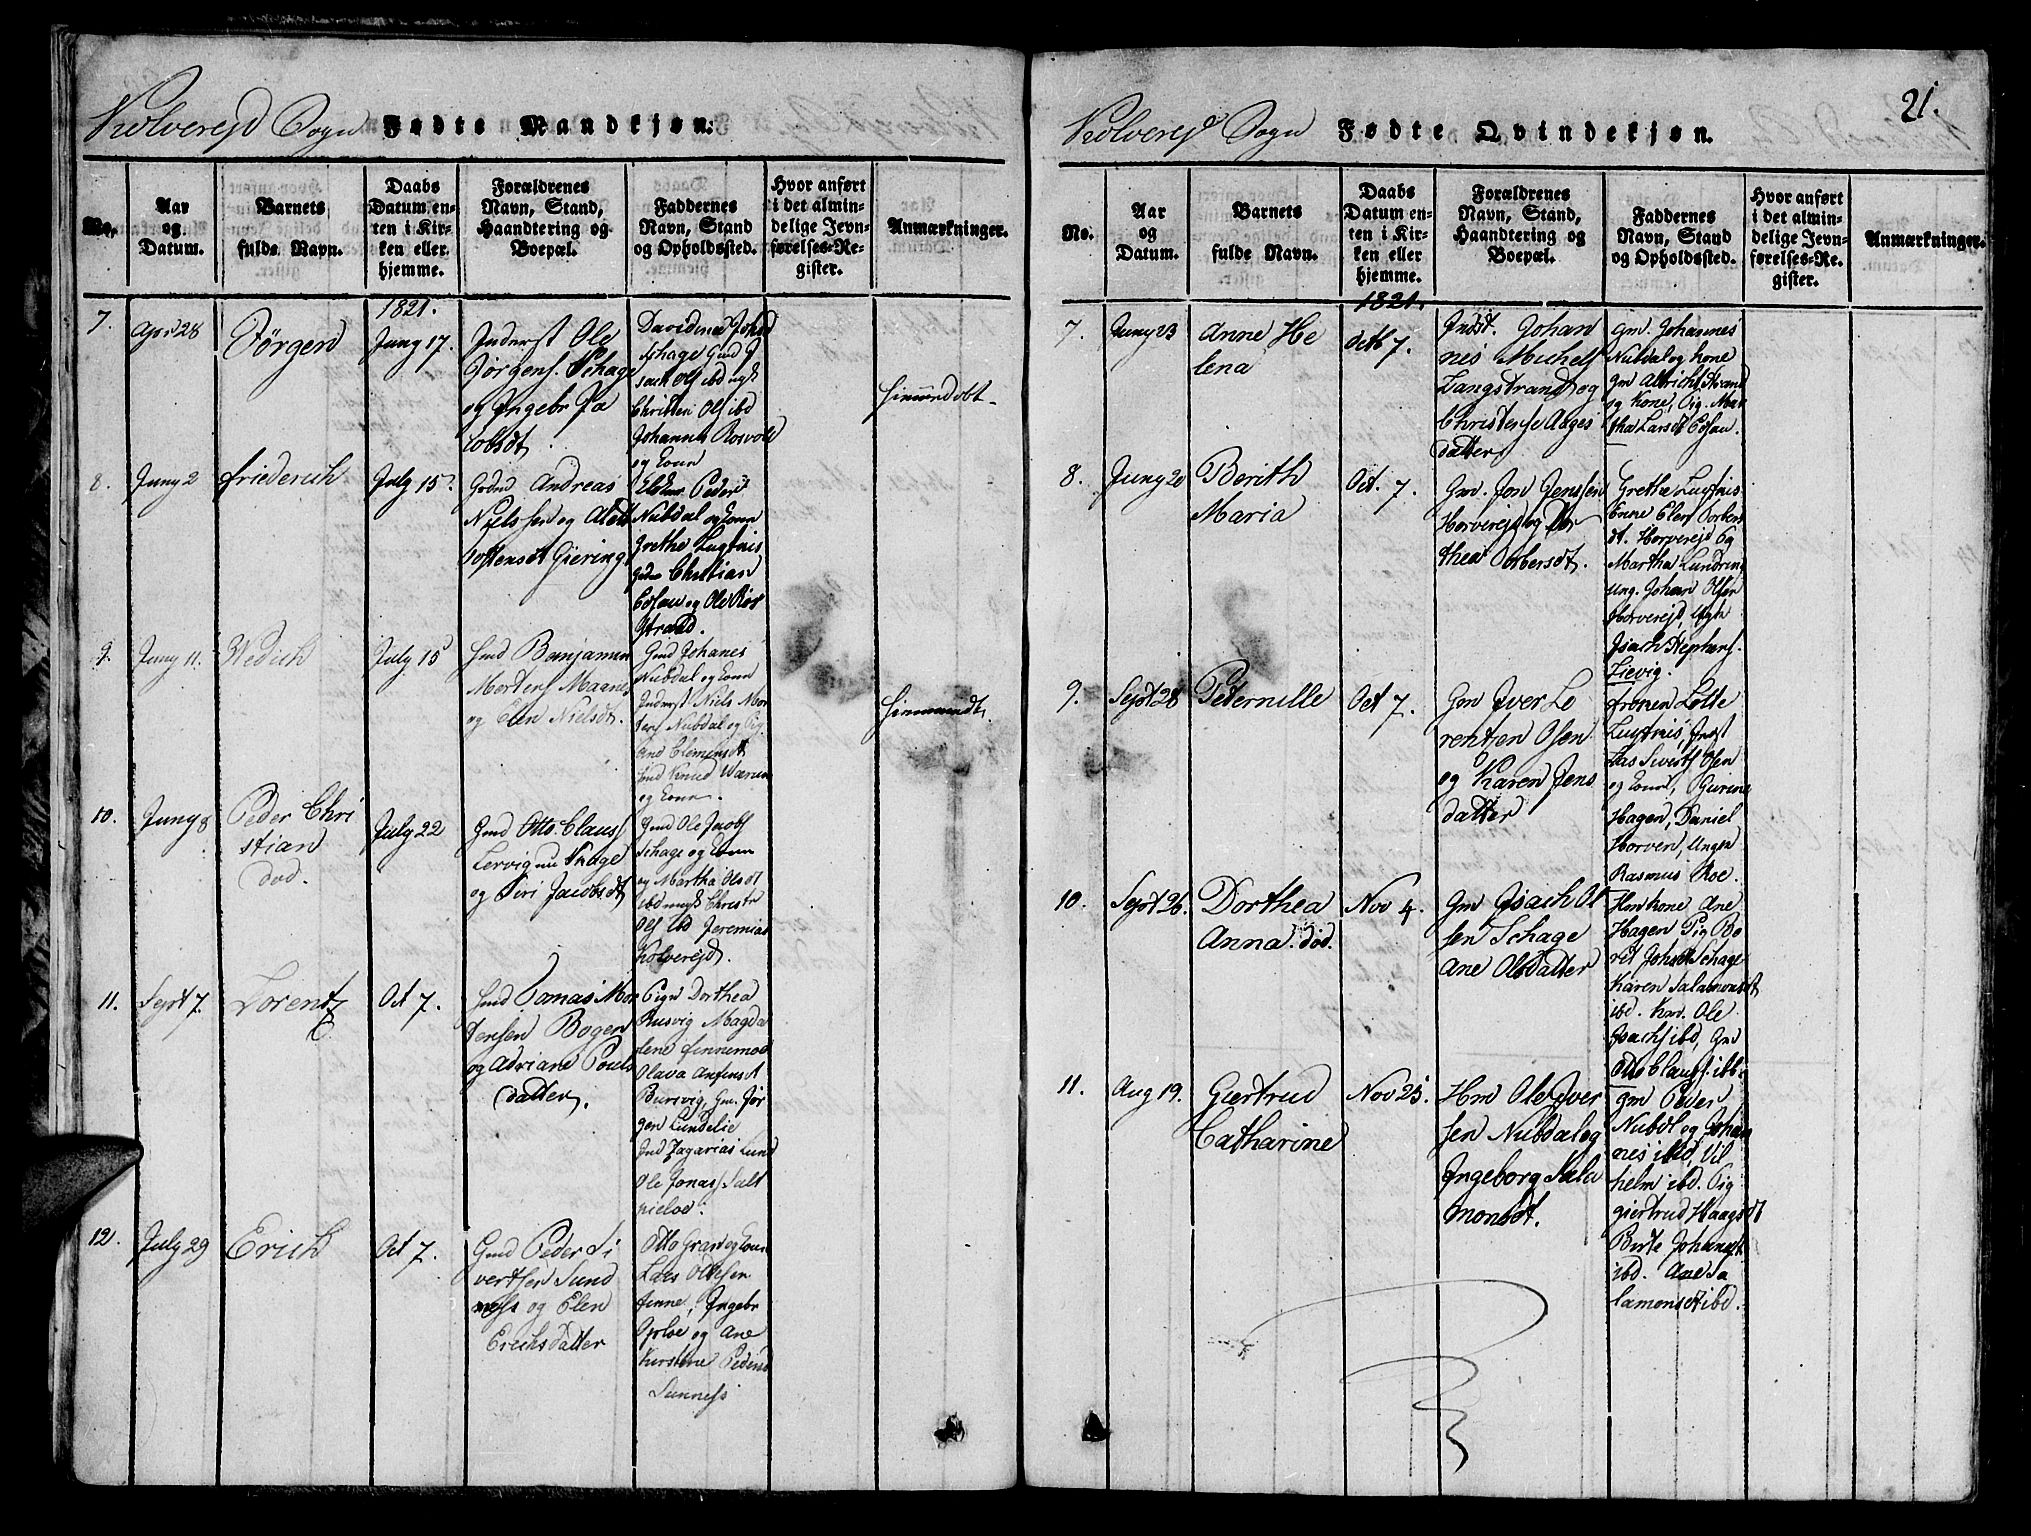 Kolverejd Sogn Fødte Mandkjøn:
No.
Aar
og
Datum.
Barnets
fulde Navn.
Daabs
Datum en-
ten i Kir-
ken eller
hjemme.
Forældrenes
Navn, Stand,
Haandtering og
Boepæl.
Faddernes
Navn, Stand
og Opholdssted.
Hvor anført
i det almin-
delige Jevn-
førelses-Re-
gister.
Anmærkninger.
1821.
7.
Apr 28
Jørgen
Juny 17.
Inderst Ole
Jørgens. Schage
og Ingebr Ja
cobsdt.
Schage Gmd J
sach Ols ibd ugk
Christen Ols ibd
Johannes Rosvold
og kone
8.
Juny 2
friederich
July 15.
Andreas
Nielssen og
Giering
Peder
Nubdal og kone
Grethe Lugtnis
Christian
og Ole Ros
Strand.
9.
Juny 11.
Wedich
July 15
Gmd Benjamin
Mortens Maanes
og Elen Nielsdt.
Gmd Johanes
Nubdal og kone
Inderst Niels Mor
tens Nubdal og Pig
Ane Clemensdt
Gmd Knud
og kone.
10.
Juny 8
Peder Chri
stian
død.
July 22
Gmd Otto Claus
Lervig nu Skage
og Siri Jacobsdt
Gmd Ole Jacobs
Schage og kone
og Martha Olsdt
ibd ungk Christe
Ols ibd Jeremias
Kolverejd.
11.
Sept 7.
Lorentz
Oct 7.
Gmd Tomas Mor
tensen Bogen
og Adriane Pouls
datter.
Pige Dorthea
Rusvig Magda
lene finnemoe
Olava
gen Lundelie
Ind Zagarias Lund
Ole Jonas Salt
12.
July 29
Erich
Oct 7.
Gmd Peder Si
vertsen Sund
ness og Elen
Erichsdatter
Otto Gran og kone
Lars Oldesen
finne, Ingebr
Oploe og Ane
Kirstine Peders
Sunness
Kolverejd Sogn Fødte Qvindekjøn.
21.
No.
Aar
og
Datum.
Barnets
fulde Navn.
Daabs
Datum en-
ten i Kir-
ken eller
hjemme.
Forældrenes
Navn, Stand,
Haandtering og
Boepæl.
Faddernes
Navn, Stand
og Opholdssted.
Hvor anført
i det almin-
delige Jevn-
førelses-Re-
gister.
Anmærkninger.
1821.
7.
Juny 23
Anne He
lena
Octb 7.
Indst. Johan
nis Michels
Langstrand og
Christense Aages
datter
Gm. Johannes
Nubdal og kone
Gm Albricht Strand
og Kone, Pig. Mar
tha Larsdt
8.
Juny 20
Berith
Maria
Oct. 7.
Gm. Jon Jenssen
Horverejd og Dor
thea Torbersdt.
Grethe Lugtnis
Enne Elen Torbers
dt. Horverejd Og
Martha Lundring
Ung. Johan Olsen
Horverejd, Ugk
Isach Stephens.
Lievig.
9.
Sept 28
Peternille
Oct 7.
Gm Iver Lo
rentzen Osen
og Karen Jens
datter
fronen Lotte
Lugtnis, Inst
Lars Siverts Osen
og kone, Gurine
Hagen, Daniel
Horven, Ungen
Rasmus Roe.
10.
Sept 26.
Dorthea
Anna. død.
Nov 4.
Gm Isach Ol
sen Schage
Ane Olsdatter
Hm kone Ane
Hagen Pig Bo
ret Johsdt Schage
Karen Salamonsdt
ibd. Kar. Ole
Isachs ibd, Gm
Otto Clauss. ibd.
11.
Aug 19.
Giertrud
Catharine
Nov 25.
Hm Ole Iver
sen Nubdal og
Ingeborg Sala
monsdt.
Gm Peder
Nubdl og Johan
nes ibid, Vil
helm ibd. Pig
Giertrud Haagsdt
Birte Johansdt
ibd. Ane Sa
lamonsdt ibd.